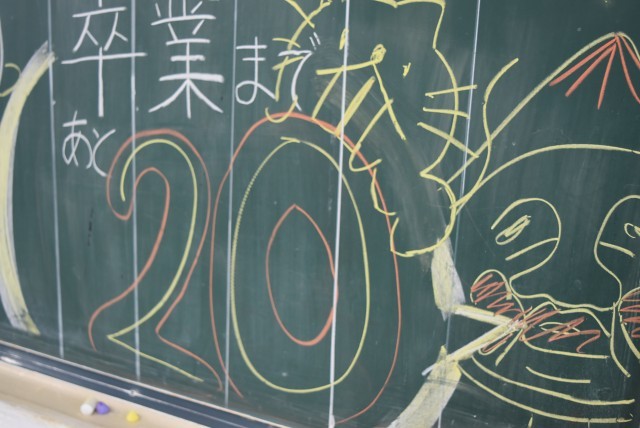 卒業まで
あと
20